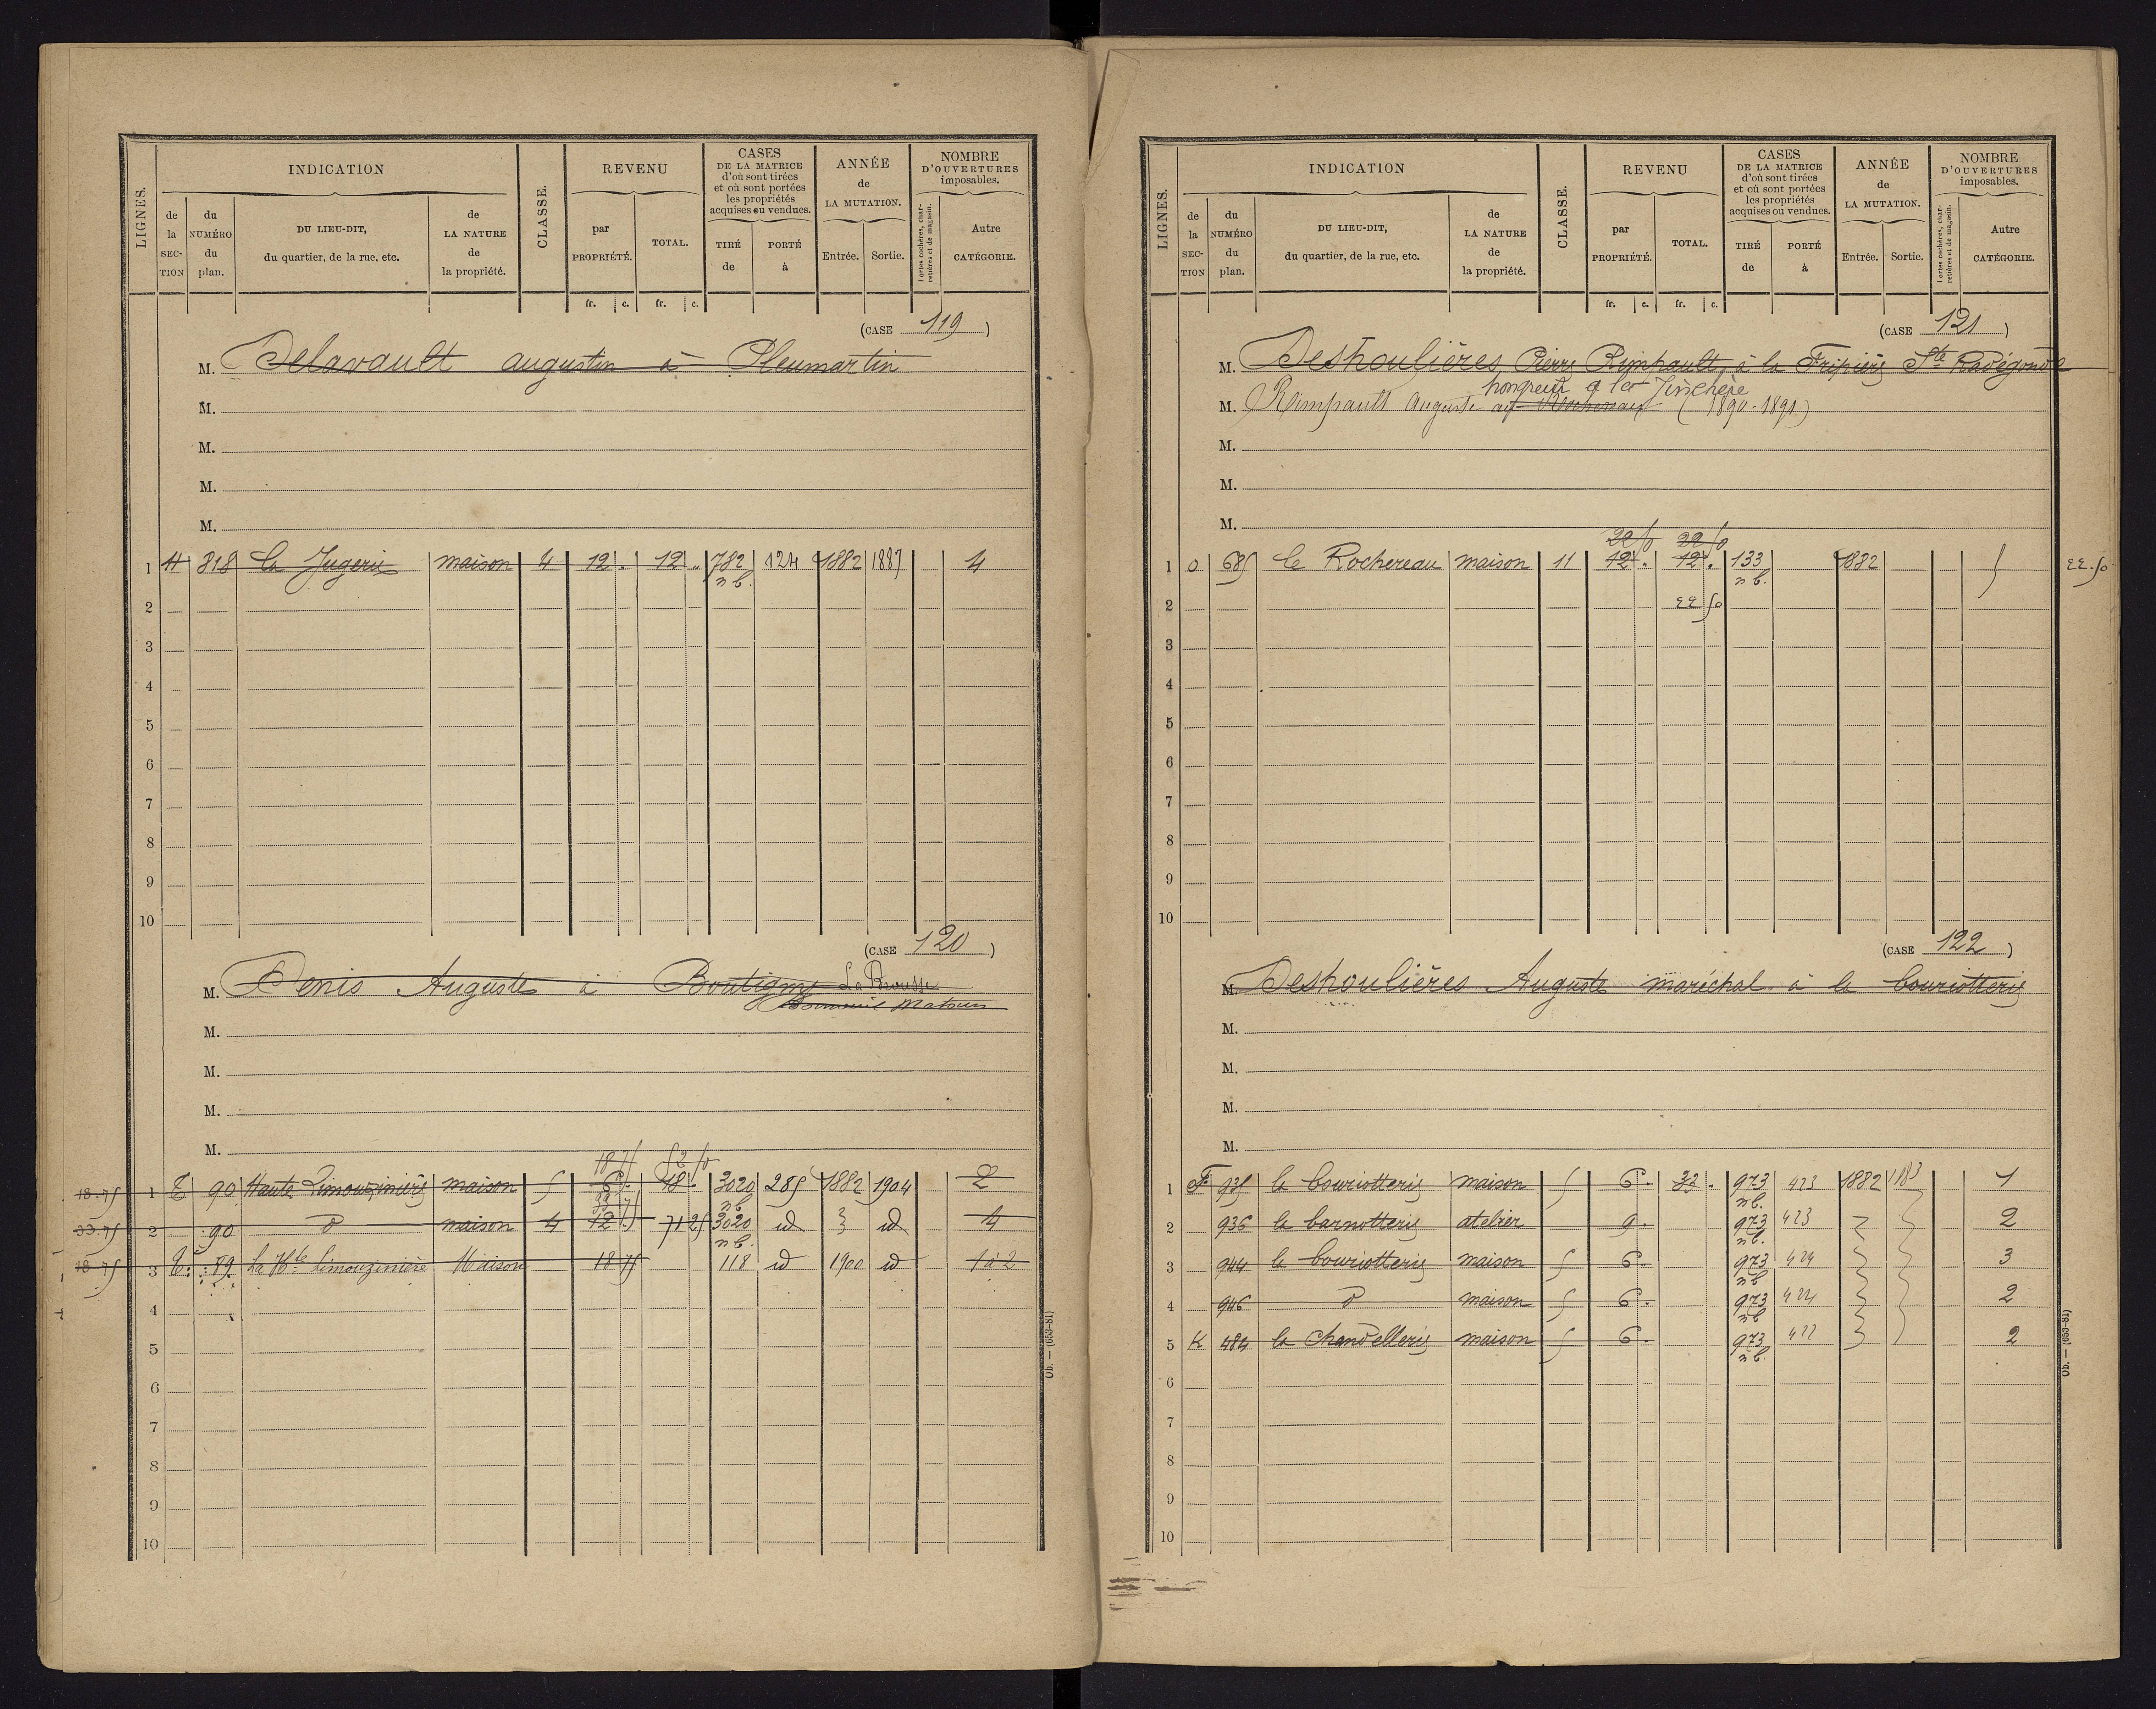 LIGNES.
INDICATION
de la SECTION
du NUMÉRO du plan.
DU LIEU-DIT, du quartier, de la rue, etc.
de LA NATURE de la propriété.
CLASSE.
REVENU
par PROPRIÉTÉ.
TOTAL.
fr. c. fr. c.
CASES DE LA MATRICE d'où sont tirées et où sont portées les propriétés acquises ou vendues.
TIRÉ de
PORTÉ à
ANNÉE de LA MUTATION.
Entrée. Sortie.
NOMBRE D'OUVERTURES imposables.
Portes cochères, charretières et de magasin.
Autre CATÉGORIE.
(CASE 119)
M. Delavault augustin à Pleumartin
M.
M.
M.
M.
1 H 818 La Jugerie maison 4 12 . 12 . 782 n b. 124 1882 1887 4
2
3
4
5
6
7
8
9
10
(CASE 120)
M. Denis Auguste à Boutigny La Brousse
Matours
M.
M.
M.
M.
18 75 52 50
18.75 1 E 90 Haute Limouzinière maison 5 6 . 18 . 3020 n b 285 1882 1904 2
33.75 2 90 d maison 4 12 . 71 25 3020 n b. id id 4
18.75 3 E. 89 La Hte Limouzinière Maison 18 75 118 id 1900 id 1 à 2
4
5
6
7
8
9
10
Ob. — (653-81)
LIGNES.
INDICATION
de la SECTION
du NUMÉRO du plan.
DU LIEU-DIT, du quartier, de la rue, etc.
de LA NATURE de la propriété.
CLASSE.
REVENU
par PROPRIÉTÉ.
TOTAL.
fr. c. fr. c.
CASES DE LA MATRICE d'où sont tirées et où sont portées les propriétés acquises ou vendues.
TIRÉ de
PORTÉ à
ANNÉE de LA MUTATION.
Entrée. Sortie.
NOMBRE D'OUVERTURES imposables.
Portes cochères, charretières et de magasin.
Autre CATÉGORIE.
(CASE 121)
M. Deshoulières Pierre Rimpault, à la Fripière Ste Radégonde
hongreur à la Jinchère
M. Rimpault Auguste au Rochereau (1890-1891)
M.
M.
M.
22 50 22 50
1 O 685 Le Rochereau maison 11 12 . 12 . 133 n b. 1882 5 22.50
2 22 50
3
4
5
6
7
8
9
10
(CASE 122)
M. Deshoulières Auguste maréchal à la bouriotterie
M.
M.
M.
M.
1 F 935 la bouriotterie maison 5 6 . 33 . 973 n b. 423 1882 1883 1
2 936 la barnotterie atelier 9 . 973 n b. 423 2
3 944 la bouriotterie maison 5 6 . 973 n b 424 3
4 946 d maison 5 6 . 973 n b 424 2
5 K 484 la Chandellerie maison 5 6 . 973 n b. 422 2
6
7
8
9
10
Ob. — (653-81)